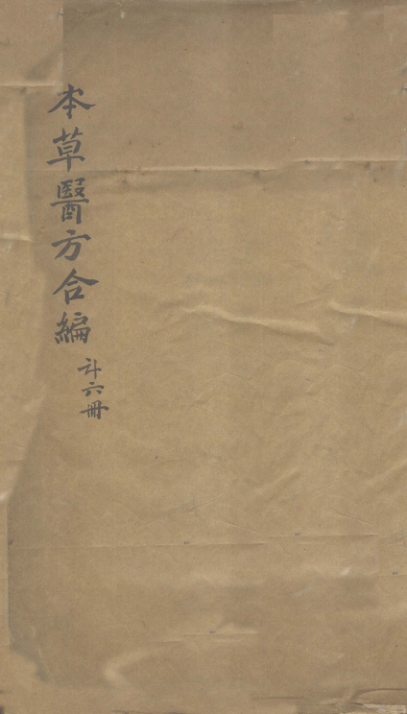 本草醫方合編
計六冊